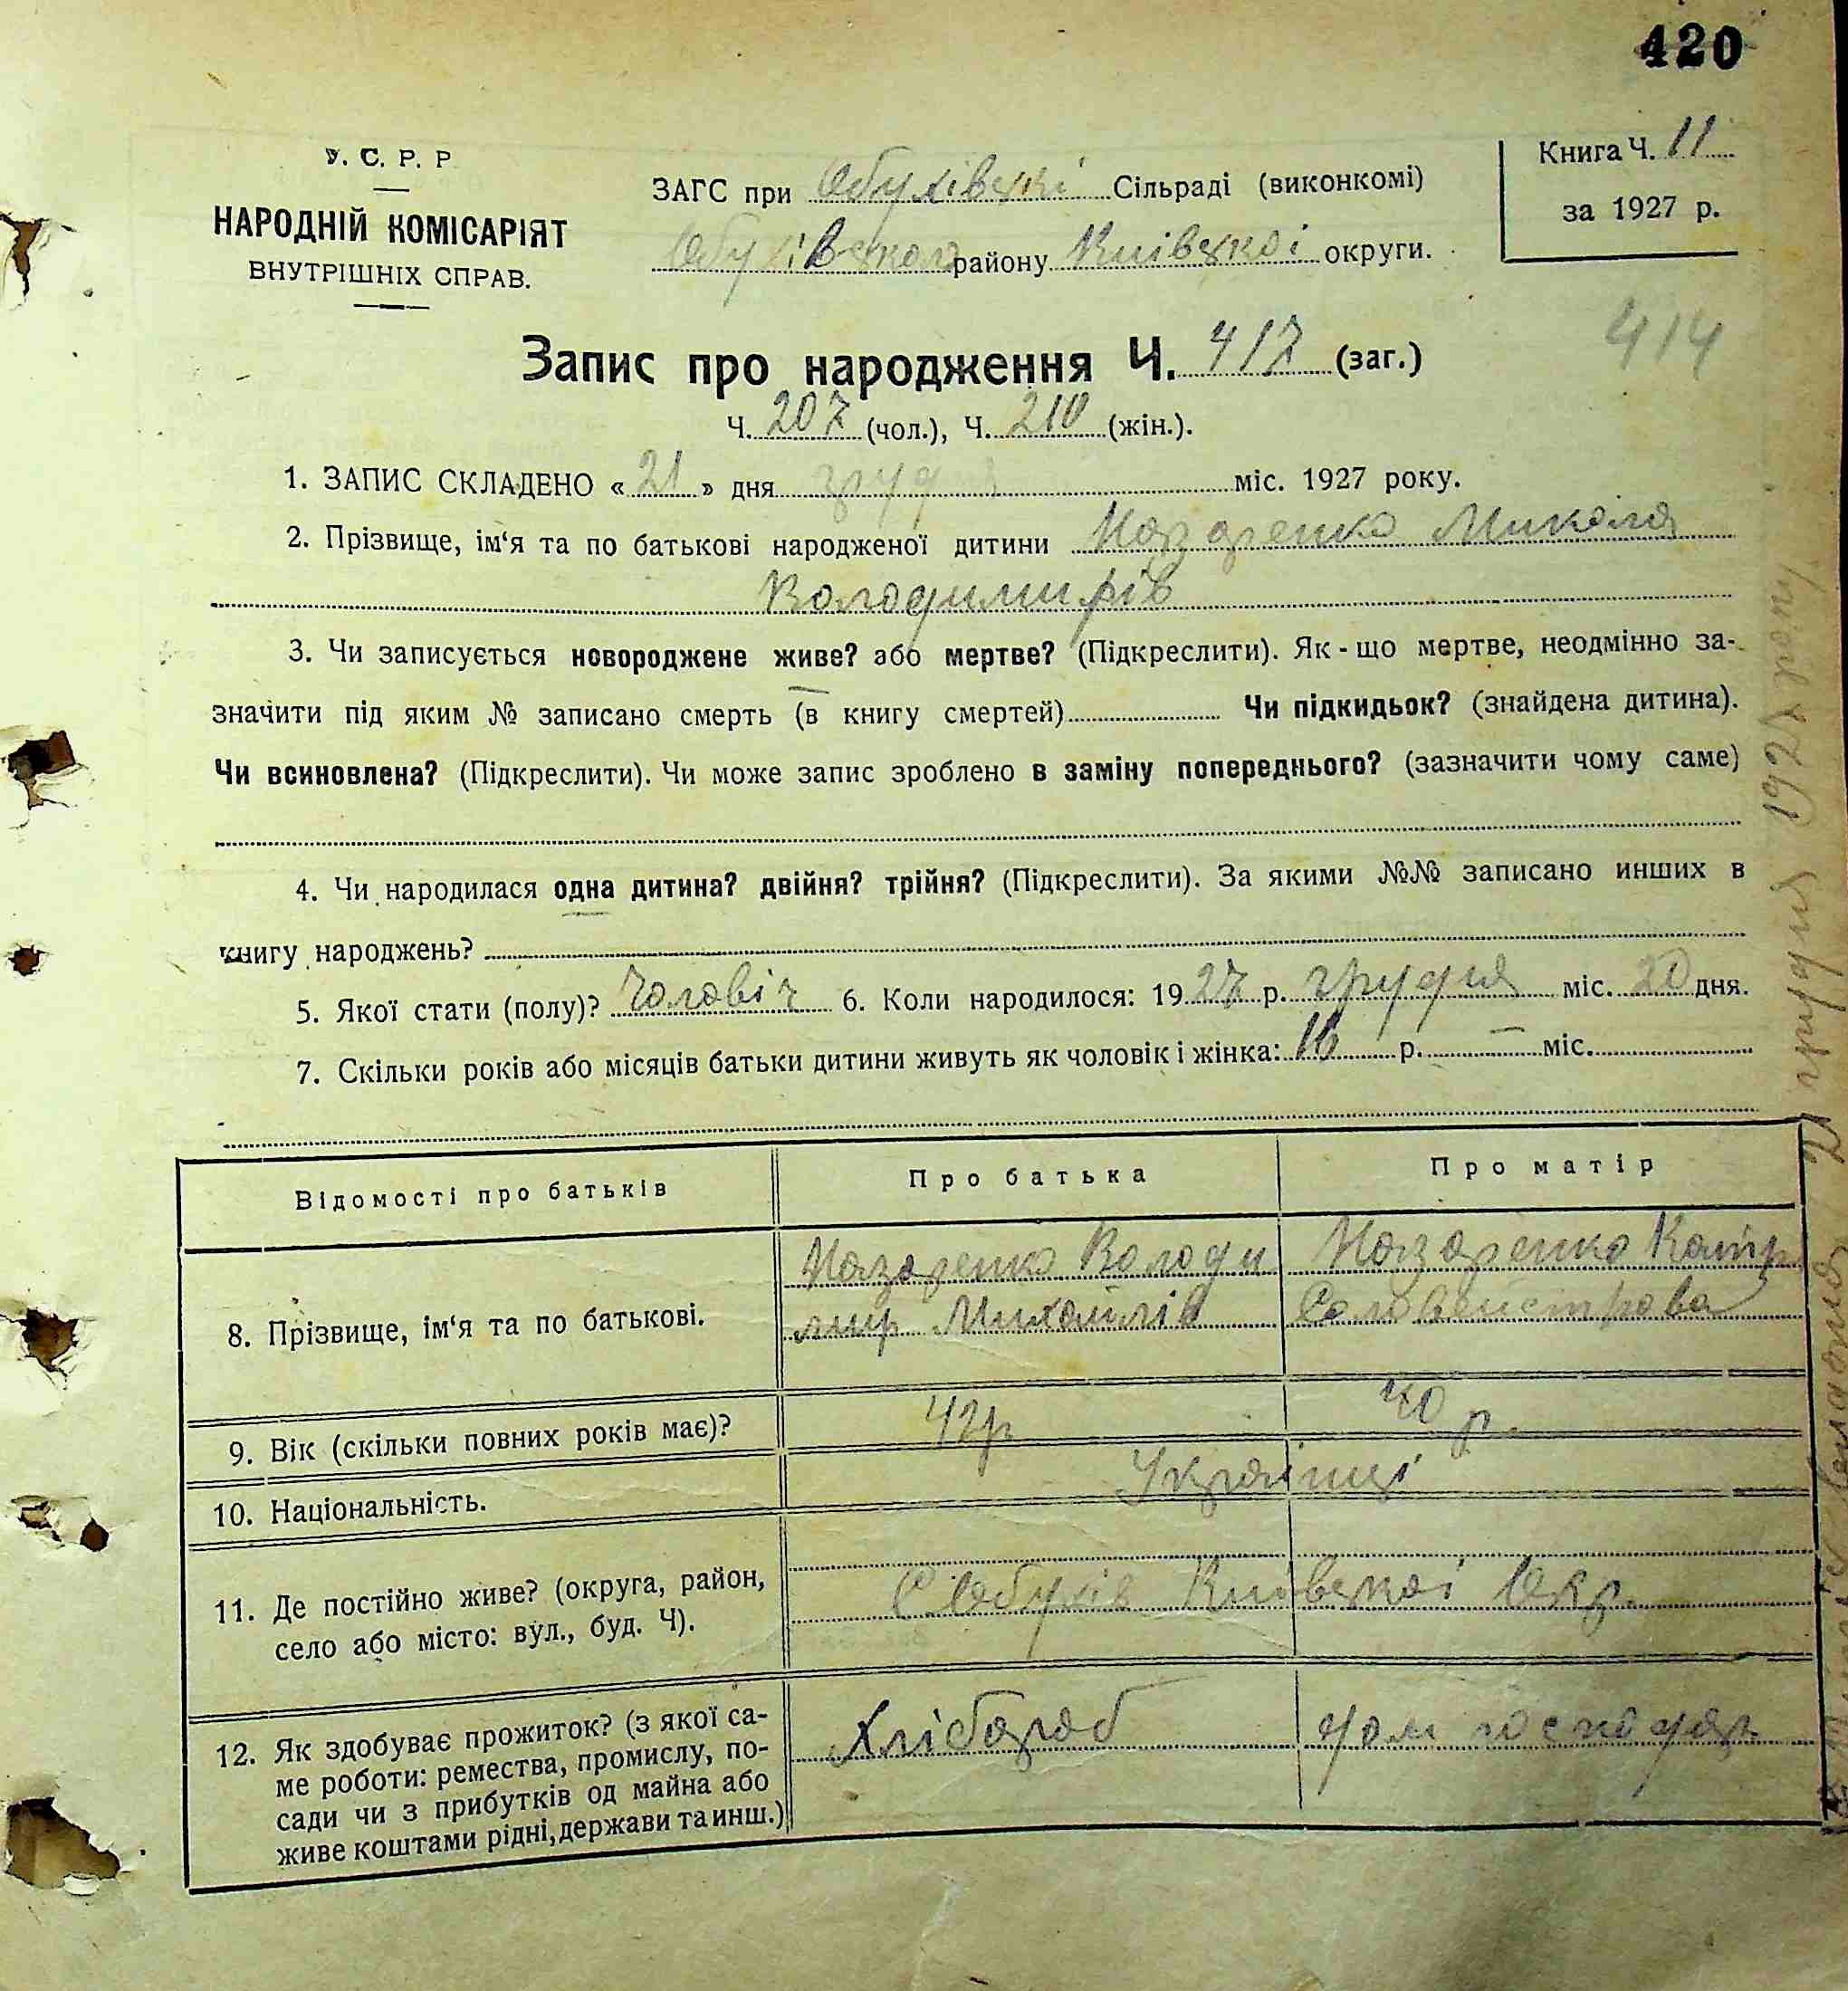 420
У. С. Р. Р
НАРОДНІЙ КОМІСАРІЯТ
ВНУТРІШНІХ СПРАВ.
ЗАГС при Обухівскі Сільраді (виконкомі)
Обухівского району Київскоі округи.
Книга Ч. 11
за 1927 р.
414
Запис про народження Ч. 417 (заг.)
Ч. 207 (чол.), Ч. 210 (жін.).
1. ЗАПИС СКЛАДЕНО « 21 » дня грудня міс. 1927 року.
2. Прізвище, ім‘я та по батькові народженої дитини Назаренко Микола
Володимирів
3. Чи записується новороджене живе? або мертве? (Підкреслити). Як-що мертве, неодмінно за-
значити під яким № записано смерть (в книгу смертей) Чи підкидьок? (знайдена дитина).
Чи всиновлена? (Підкреслити). Чи може запис зроблено в заміну попереднього? (зазначити чому саме)
4. Чи народилася одна дитина? двійня? трійня? (Підкреслити). За якими №№ записано инших в
книгу народжень?
5. Якої стати (полу)? Чоловіч 6. Коли народилося: 1927 р. грудня міс. 20 дня.
7. Скільки років або місяців батьки дитини живуть як чоловік і жінка: 16 р. — міс.
Відомості про батьків
Про батька
Про матір
8. Прізвище, ім‘я та по батькові.
Назаренко Володи
мир Михайлів
Назаренко Катр
9. Вік (скільки повних років має)?
42р
40 р.
10. Національність.
Українці
11. Де постійно живе? (округа, район,
село або місто: вул., буд. Ч).
С Обухів Київскоі Окр.
12. Як здобуває прожиток? (з якої са-
ме роботи: ремества, промислу, по-
сади чи з прибутків од майна або
живе коштами рідні, держави та инш.)
Хлібороб
дом господар.
21 грудня 1927 року